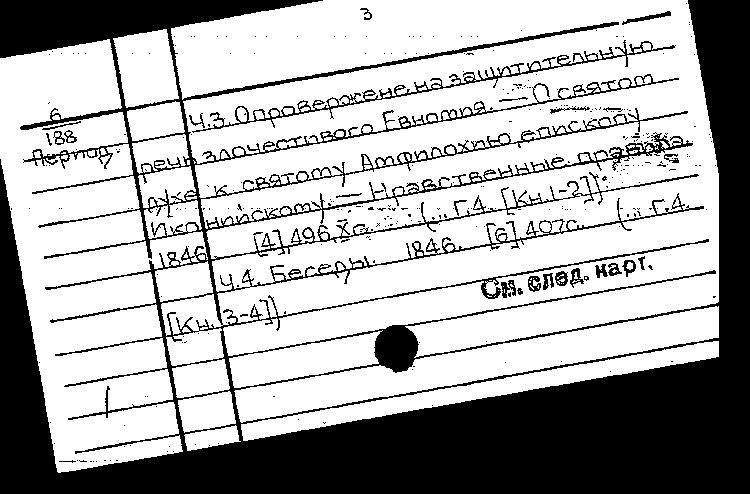 3
6
188
Период.
Ч.3. Опровержение на защитительную
речь злочестивого Евномия. — О святом
духе к святому Амфилохию, епископу
Иконийскому. — Нравственные правила.
1846. [4], 496, X с. (... Г.4. [Кн. 1-2]).
Ч.4. Беседы. 1846. [6], 407 с. (... Г.4.
[Кн. 3-4]).
См. след. карт.